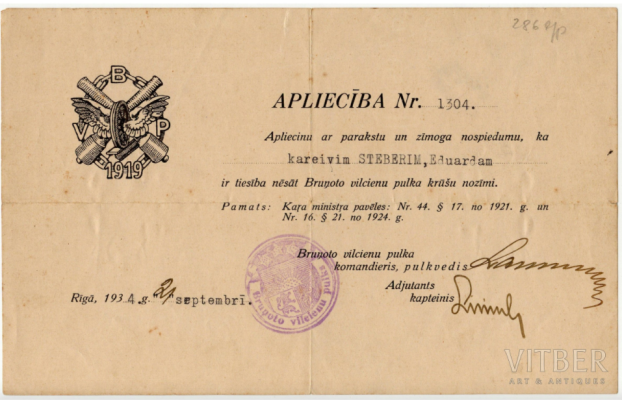 286
B
V P
1919
APLIECĪBA Nr. 1304.
Apliecinu ar parakstu un zīmoga nospiedumu, ka
kareivim STEBERIM,Eduardam
ir tiesība nēsāt Bruņoto vilcienu pulka krūšu nozīmi.
Pamats: Kaŗa ministra pavēles: Nr. 44. § 17. no 1921. g. un
Nr. 16. § 21. no 1924. g.
Bruņoto vilcienu pulka
komandieris, pulkvedis
Adjutants
kapteinis
Rīgā, 1934.g. septembrī.
Bruņoto vilcienu pulks
VITBER
ART & ANTIQUES